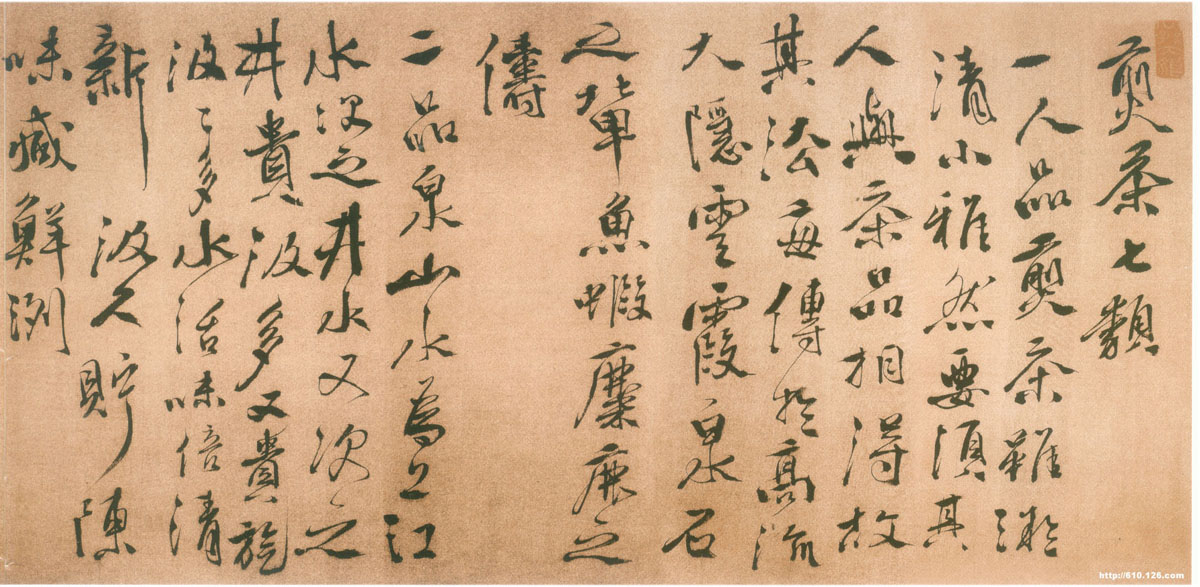 煎茶七類
一人品煎茶雖凝
清小雅然要須其
人與茶品相得故
其法每傳於高流
大隱雲霞泉石
之輩魚蝦麋鹿之
儔
二品泉山水為上江
水次之井水又次之
井貴汲多又貴旋
汲々多水活味倍清
新汲久貯陳
味減鮮洌
http://610.126.com